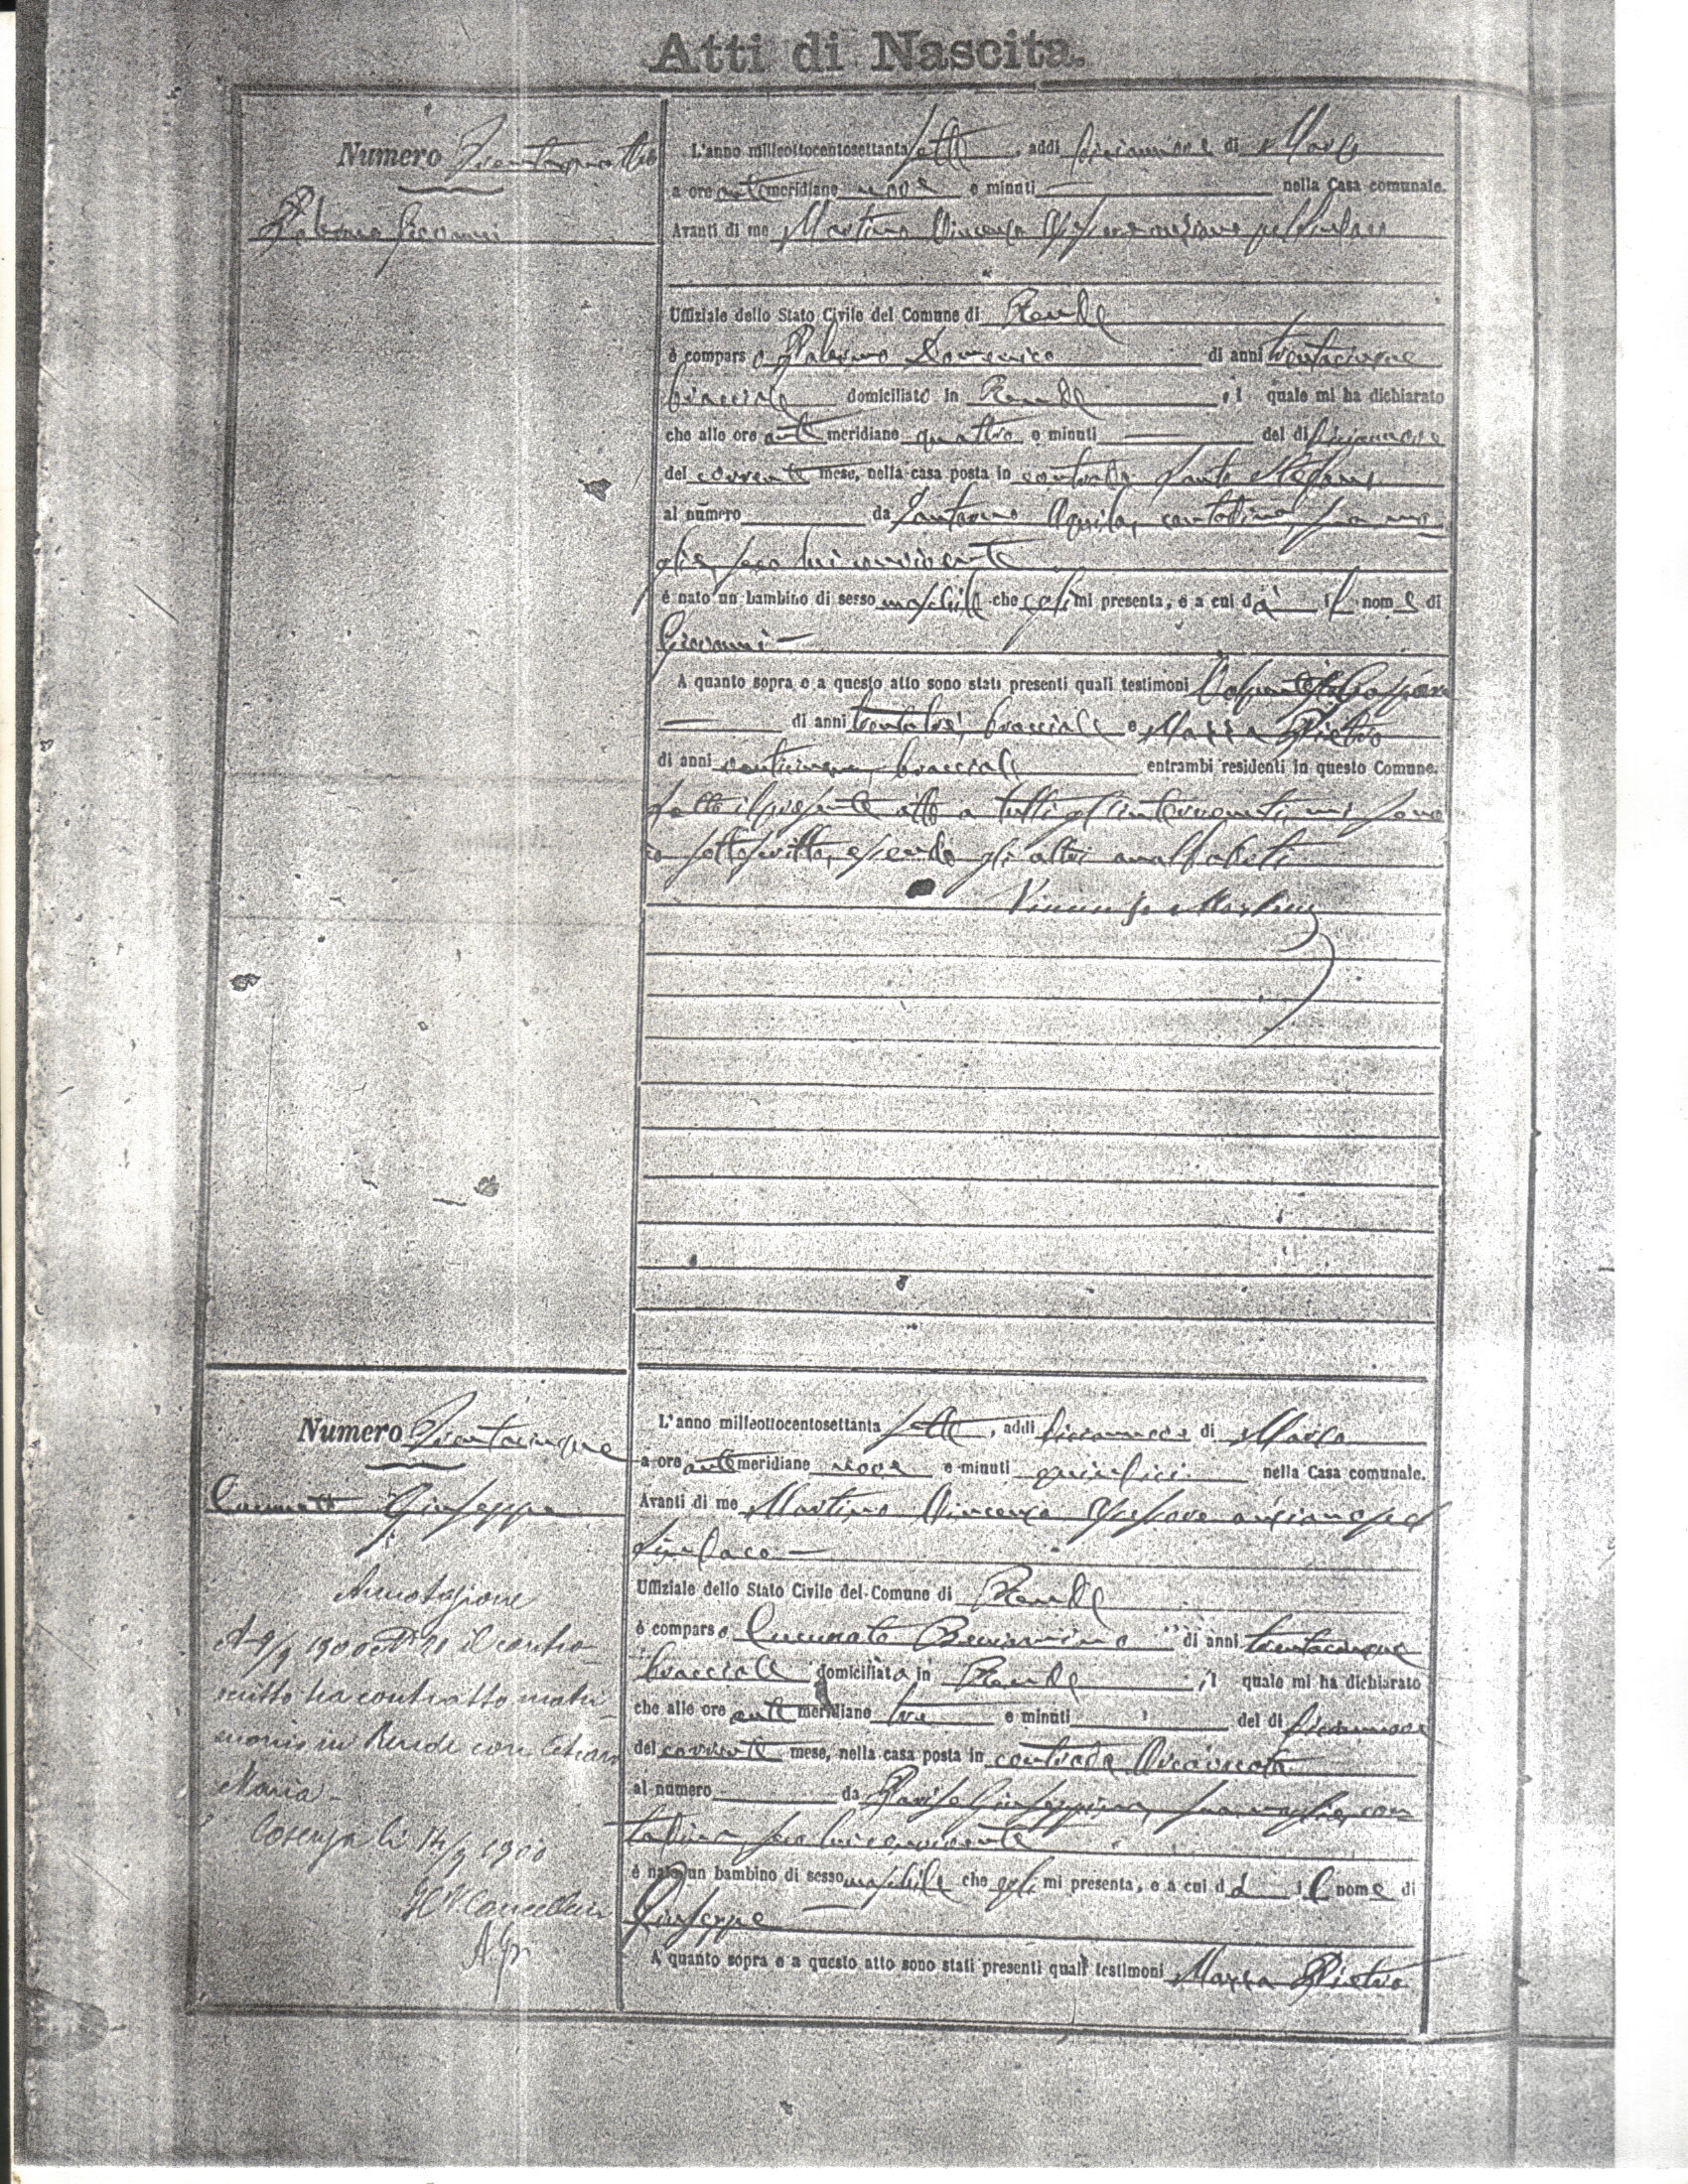 Atti di Nascita.
Numero Trentaquattro
Giovanni
L'anno milleottocentosettanta sette, addi diciannove di Marzo
a ore antimeridiane nove e minuti — nella Casa comunale.
Avanti di me Martino Vincenzo
Uffiziale dello Stato Civile del Comune di Rende
è comparso Domenico di anni trentacinque
bracciale domiciliato in Rende, il quale mi ha dichiarato
che alle ore antimeridiane quattro e minuti — del dì diciannove
del corrente mese, nella casa posta in contrada Santo Stefano
al numero da Aquila, contadina, sua mo
glie, seco lui convivente
è nato un bambino di sesso maschile che egli mi presenta, e a cui dà il nome di
Giovanni —
A quanto sopra e a questo atto sono stati presenti quali testimoni Gaspare
— di anni trentatre, bracciale e Mazza Pietro
di anni bracciale entrambi residenti in questo Comune.
Letto il presente atto a tutti gl'intervenuti, mi sono
io sottoscritto, essendo gli altri analfabeti
Vincenzo Martino
Numero Trentacinque
Cucunato Giuseppe
Annotazione
il contro
scritto ha contratto matri
monio in Rende con
Maria —
Cosenza li 14/9 1900
Il V Cancelliere
L'anno milleottocentosettanta sette, addi diciannove di Marzo
a ore antimeridiane nove e minuti quindici nella Casa comunale.
Avanti di me Martino Vincenzo Assessore anziano pel
Sindaco —
Uffiziale dello Stato Civile del Comune di Rende
è comparso Cucunato Beniamino di anni trentacinque
bracciale domiciliato in Rende, il quale mi ha dichiarato
che alle ore antimeridiane tre e minuti del dì diciannove
del corrente mese, nella casa posta in contrada Arcavacata
al numero da Giuseppina, sua moglie, con
tadina, seco lui convivente
è nato un bambino di sesso maschile che egli mi presenta, e a cui dà il nome di
Giuseppe —
A quanto sopra e a questo atto sono stati presenti quali testimoni Mazza Pietro